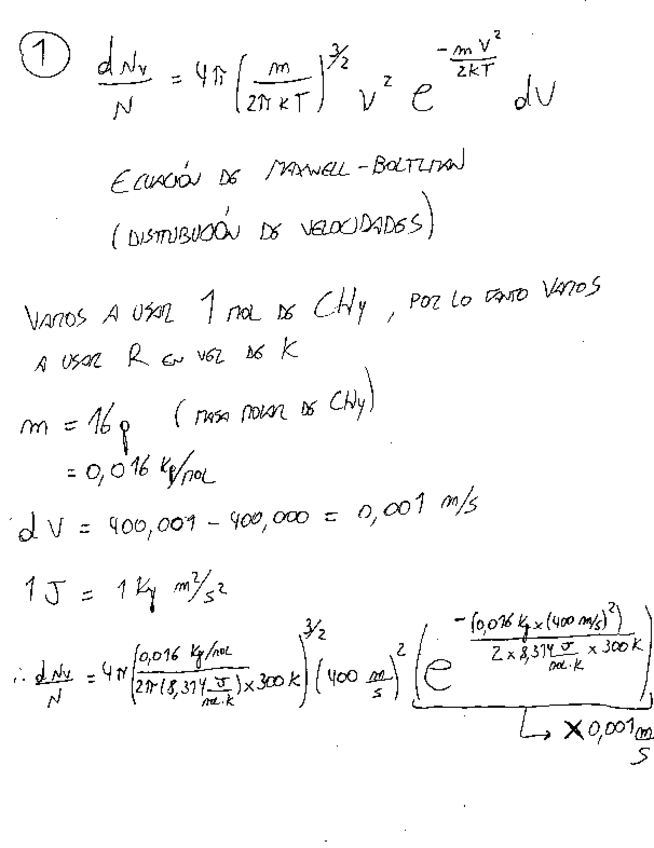 1 dNv/N = 4π (m/2πkT)^3/2 v² e^(-mv²/2kT) dV
ECUACIÓN DE MAXWELL-BOLTZMAN
(DISTRIBUCIÓN DE VELOCIDADES)
VAMOS A USAR 1 MOL DE CH4, POR LO TANTO VAMOS
A USAR R EN VEZ DE K
m = 16 g (MASA MOLAR DE CH4)
= 0,016 Kg/MOL
dV = 400,001 - 400,000 = 0,001 m/s
1 J = 1 Kg m²/s²
∴ dNv/N = 4π (0,016 Kg/mol / 2π(8,314 J/mol.K) x 300 K)^3/2 (400 m/s)² (e^(-(0,016 Kg x (400 m/s)²) / 2 x 8,314 J/mol.K x 300 K))
↳ X 0,001 m/s